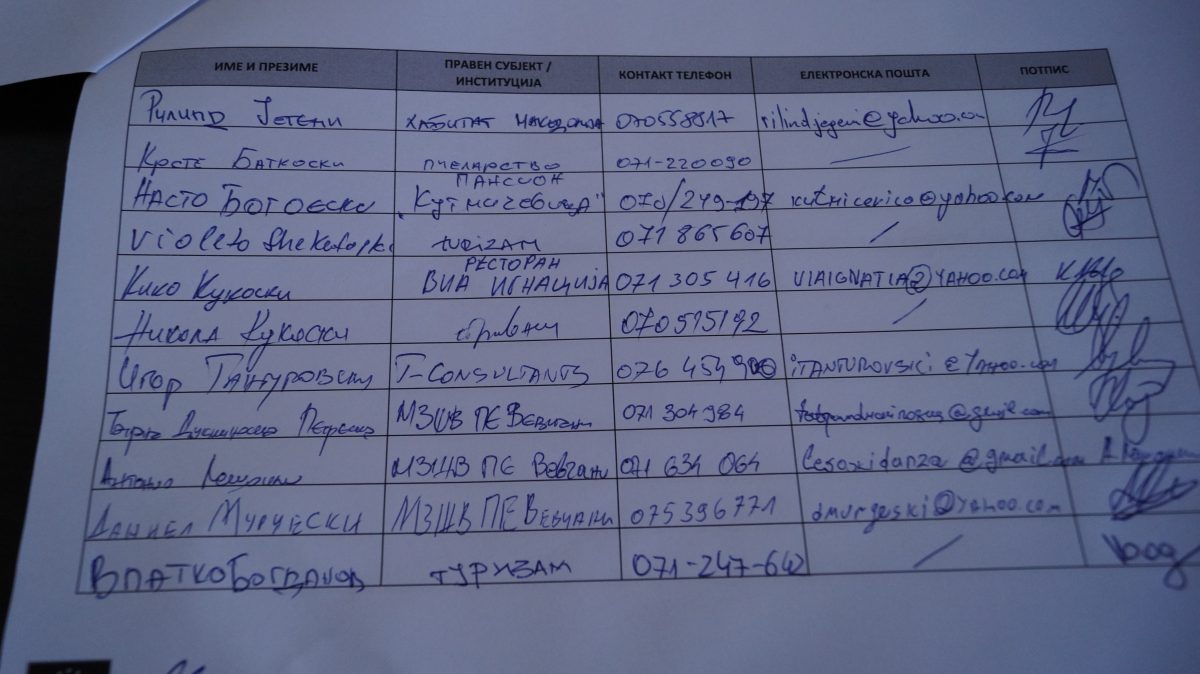 ИМЕ И ПРЕЗИМЕ ПРАВЕН СУБЈЕКТ / ИНСТИТУЦИЈА КОНТАКТ ТЕЛЕФОН ЕЛЕКТРОНСКА ПОШТА ПОТПИС
Рилинд ХАБИТАТ МАКЕДОНИЈА 070558817
Крсте Баткоски ПЧЕЛАРСТВО 071-220090
НАСТО БОГОЕСКИ ПАНСИОН „Кутмичевица" 070/249-197
Violeta turizam 071 865607
Кико Кукоски РЕСТОРАН ВИА ИГНАЦИЈА 071 305 416 VIAIGNATIA@YAHOO.com
Никола Кукоски 070515192
Игор Тантуровски T-CONSULTANTS 076 454 ITANTUROVSKI@Yahoo.com
МЗШВ ПЕ Вевчани 071 304 984
МЗШВ ПЕ Вевчани 071 634 064 lesoxidanza@gmail.com
Даниел Мурчески МЗШВ ПЕ Вевчани 075396771 dmurgeski@Yahoo.com
ВЛАТКО БОГДАНОВ ТУРИЗАМ 071-247-642